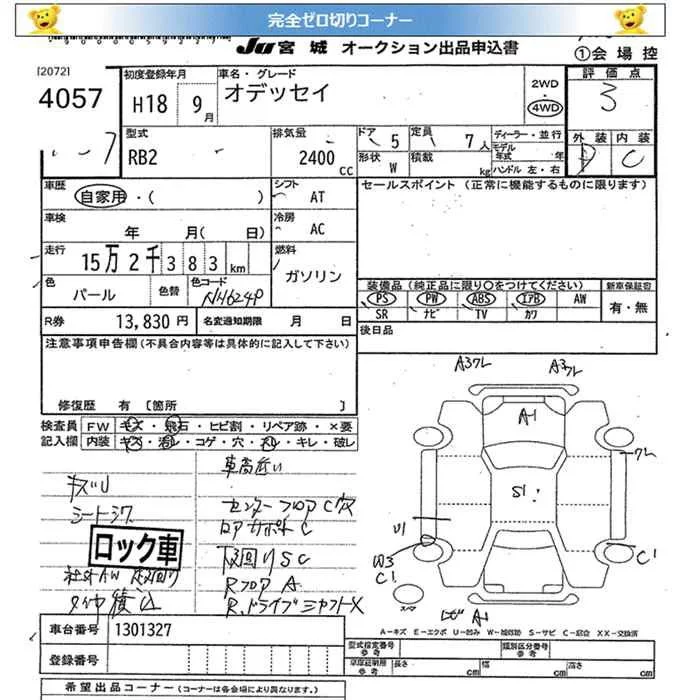 完全ゼロ切りコーナー
JU 宮城 オークション出品申込書
①会場控
[2072]
4057
初度登録年月
H18 9月
車名・グレード
オデッセイ
2WD
・
4WD
評価点
3
外装 内装
D C
型式
RB2
排気量
2400 cc
ドア 5
定員 7人
形状 W
積載 kg
ディーラー・並行
モデル年式 年
ハンドル 左・右
車歴
自家用・( )
シフト
AT
セールスポイント (正常に機能するものに限ります)
車検
年 月( 日)
冷房
AC
走行
15万2千383km
燃料
ガソリン
色
パール
色替
色コード
NH624P
装備品(純正品に限り○をつけてください)
PS PW ABS エアB AW
SR ナビ TV カワ
新車保証書
有・無
R券
13,830 円
名変通知期限 月 日
後日品
注意事項申告欄(不具合内容等は具体的に記入して下さい)
修復歴 有 [箇所 ]
検査員
記入欄
FW キズ・飛石・ヒビ割・リペア跡・×要
内装
コゲ・穴
キレ・破レ
キズU
車高低い
センターフロアC穴
ロアサポートC
下回りSC
RフロアA
R.ドライブシャフトX
ロック車
社外AW
タイヤ積込
A3
A3
A-1
S1
U1
W3
C1
C1
A-1
A-キズ E-エクボ U-凹み W-補修跡 S-サビ C-腐食 XX-交換済
車台番号 1301327
登録番号
型式指定番号
参考
類別区分番号
参考
長さ cm
幅 cm
高さ cm
希望出品コーナー(コーナーは各会場により異なります。)